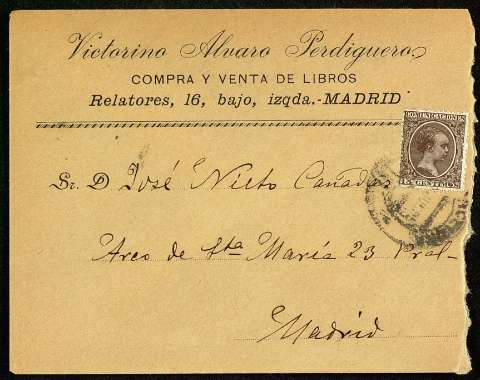 Victorino Alvaro Perdiguero
COMPRA Y VENTA DE LIBROS
Relatores, 16, bajo, izqda.-MADRID
COMUNICACIONES
15 CENTIMOS
Sr. D José Nieto Cañadas
Arco de Sta María 23 Pral-
Madrid